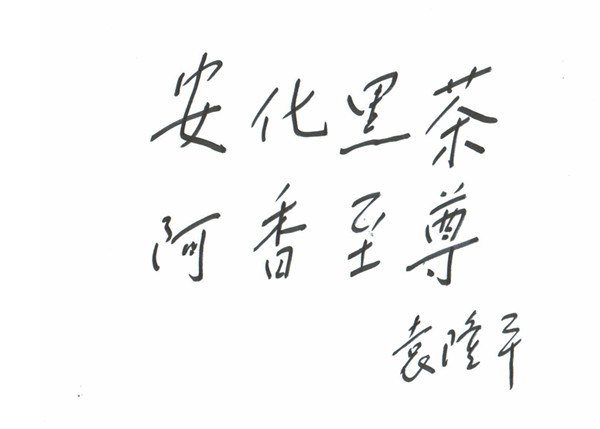 安化黑茶
阿香至尊
袁隆平